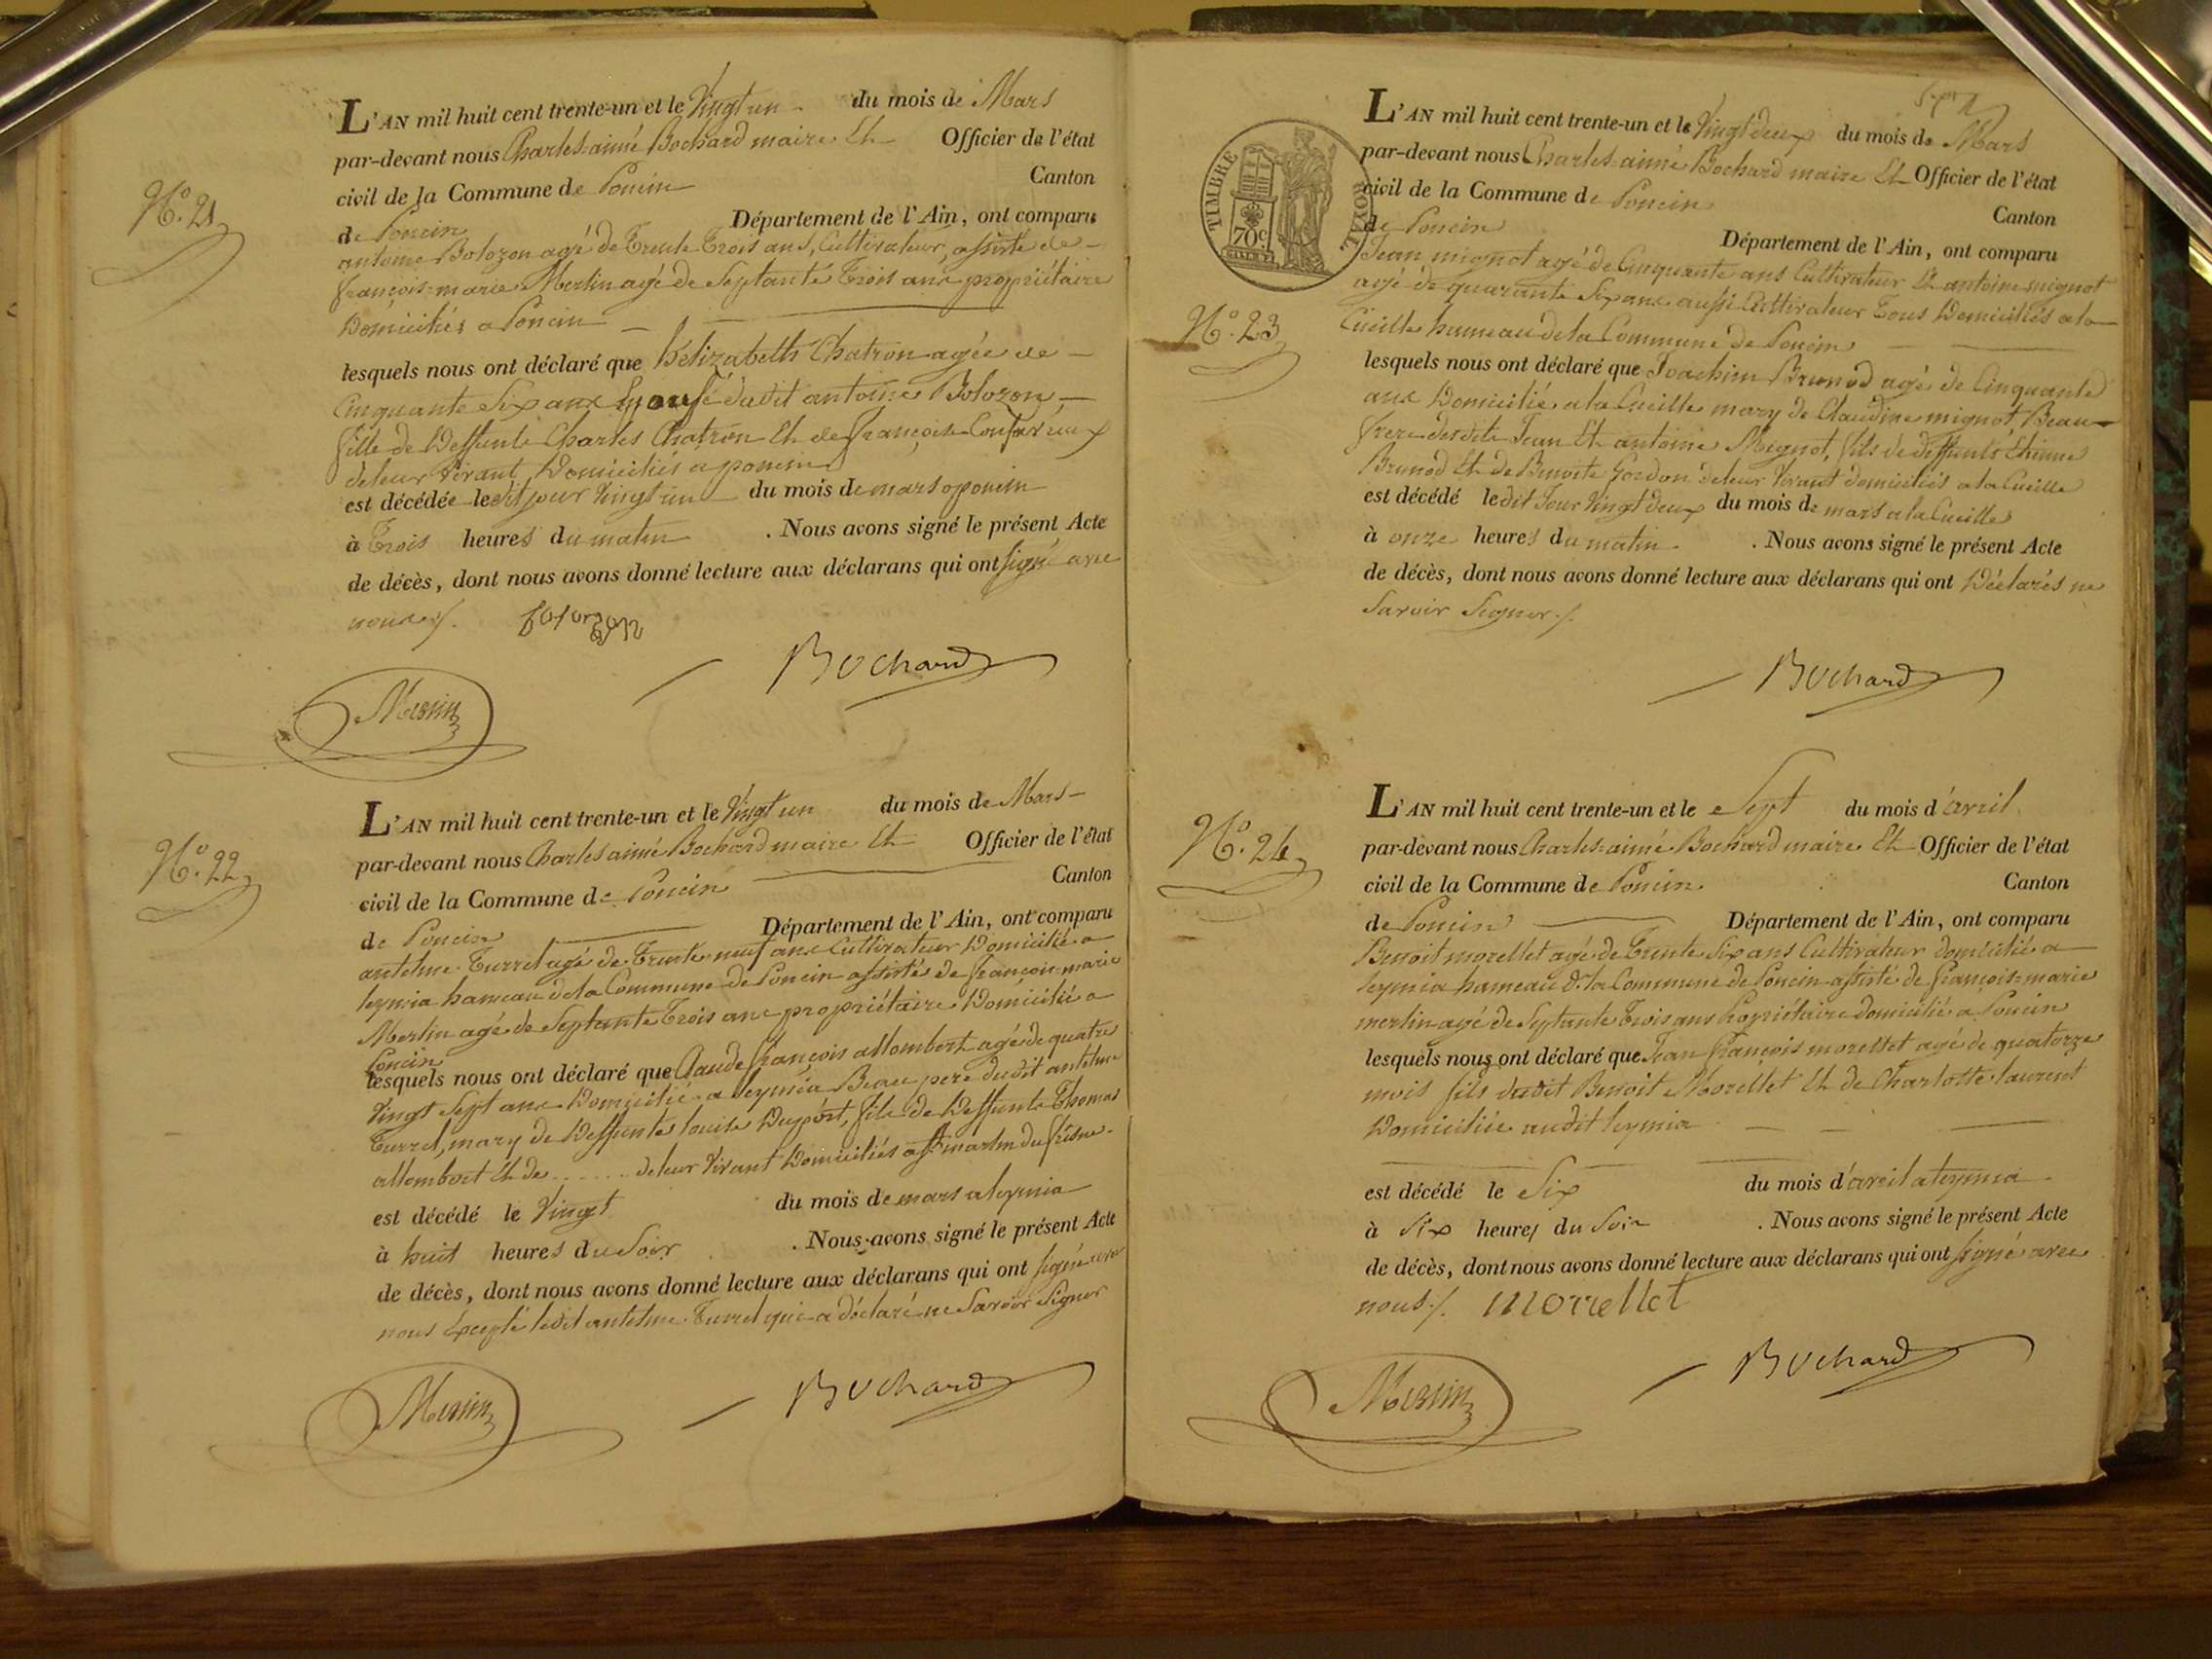 N.° 21
L'AN mil huit cent trente-un et le Vingt un du mois de Mars
par-devant nous Charles-aimé Bochard maire Et Officier de l'état
civil de la Commune de Poncin Canton
de Poncin Département de l'Ain, ont comparu
antoine Bolozon agé de Trente Trois ans, Cultivateur, assisté de
françois-marie Merlin agé de Septante Trois ans propriétaire
Domiciliés a Poncin
lesquels nous ont déclaré que Hélizabeth Chatron agée de
Cinquante Six ans Epouse dudit antoine Bolozon
fille de Deffunts Charles Chatron Et de françoise
de leur Vivant Domiciliés a poncin
est décédée le dit jour Vingt un du mois de mars a poncin
à Trois heures du matin . Nous avons signé le présent Acte
de décès, dont nous avons donné lecture aux déclarans qui ont signé avec
nous /.
Bochard
Merlin
N.° 22
L'AN mil huit cent trente-un et le Vingt un du mois de Mars
par-devant nous Charles aimé Bochard maire Et Officier de l'état
civil de la Commune de Poncin Canton
de Poncin Département de l'Ain, ont comparu
antelme Turrel agé de Trente-neuf ans Cultivateur Domicilié a
leymia hameau de la Commune de Poncin assisté de françois-marie
Merlin agé de Septante Trois ans propriétaire Domicilié a
Poncin
lesquels nous ont déclaré que Claude françois allombert agé de quatre
Vingt Sept ans Domicilié a leymia Beau pere dudit antelme
Turrel, mary de Deffunte louise Dupört, fils de Deffunts Thomas
allombert Et de ...... de leur Vivant Domiciliés a St martin du frêsne
est décédé le Vingt du mois de mars a leymia
à huit heures du Soir . Nous avons signé le présent Acte
de décès, dont nous avons donné lecture aux déclarans qui ont signé avec
nous Excepté ledit antelme Turrel qui a déclaré ne Savoir Signer
Merlin
Bochard
TIMBRE ROYAL
70c
N.° 23
L'AN mil huit cent trente-un et le Vingt deux du mois de Mars
par-devant nous Charles-aimé Bochard maire Et Officier de l'état
civil de la Commune de Poncin Canton
de Poncin Département de l'Ain, ont comparu
Jean mignot agé de Cinquante ans Cultivateur Et antoine mignot
agé de quarante Six ans aussi Cultivateur Tous Domiciliés a la
Cueille hameau de la Commune de Poncin
lesquels nous ont déclaré que Joachim Brunod agé de Cinquante
ans Domicilié a la Cueille mary de Claudine mignot, Beau
frere desdits Jean Et antoine Mignot, fils de deffunts Etienne
Brunod Et de Benoite Gordon de leur Vivant domiciliés a la Cueille
est décédé le dit Jour Vingt deux du mois de mars a la Cueille
à onze heures du matin . Nous avons signé le présent Acte
de décès, dont nous avons donné lecture aux déclarans qui ont Déclarés ne
Savoir Signer /.
Bochard
N.° 24
L'AN mil huit cent trente-un et le Sept du mois d'avril
par-devant nous Charles-aimé Bochard maire Et Officier de l'état
civil de la Commune de Poncin Canton
de Poncin Département de l'Ain, ont comparu
Benoit morellet agé de Trente Six ans Cultivateur domicilié a
leymia hameau de la Commune de Poncin assisté de françois-marie
merlin agé de Septante Trois ans Propriétaire domicilié a Poncin
lesquels nous ont déclaré que Jean françois morellet agé de quatorze
mois fils dudit Benoit Morellet Et de Charlotte laurent
Domiciliés audit leymia
est décédé le Six du mois d'avril a leymia
à Six heures du Soir . Nous avons signé le présent Acte
de décès, dont nous avons donné lecture aux déclarans qui ont signé avec
nous /. morrellet
Bochard
Merlin